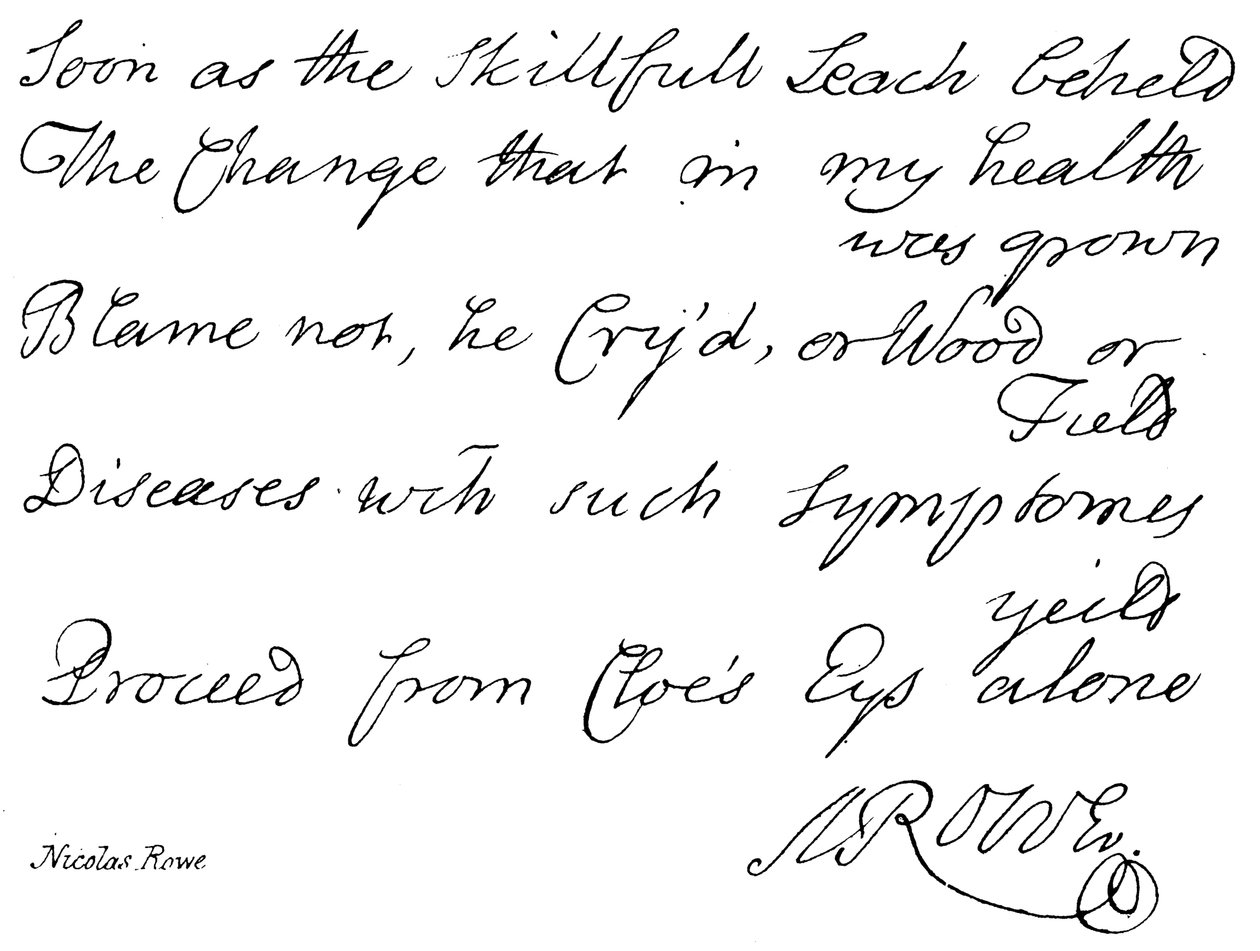 Soon as the Skillfull Leach beheld
The Change that in my health
was grown
Blame not, he Cry'd, or Wood or
Field
Diseases wth such Symptomes
yeild
Proceed from Cloe's Eys alone
NROWE.
Nicolas Rowe